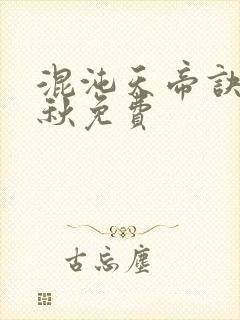 混沌天帝訣
秋免費
古忘塵